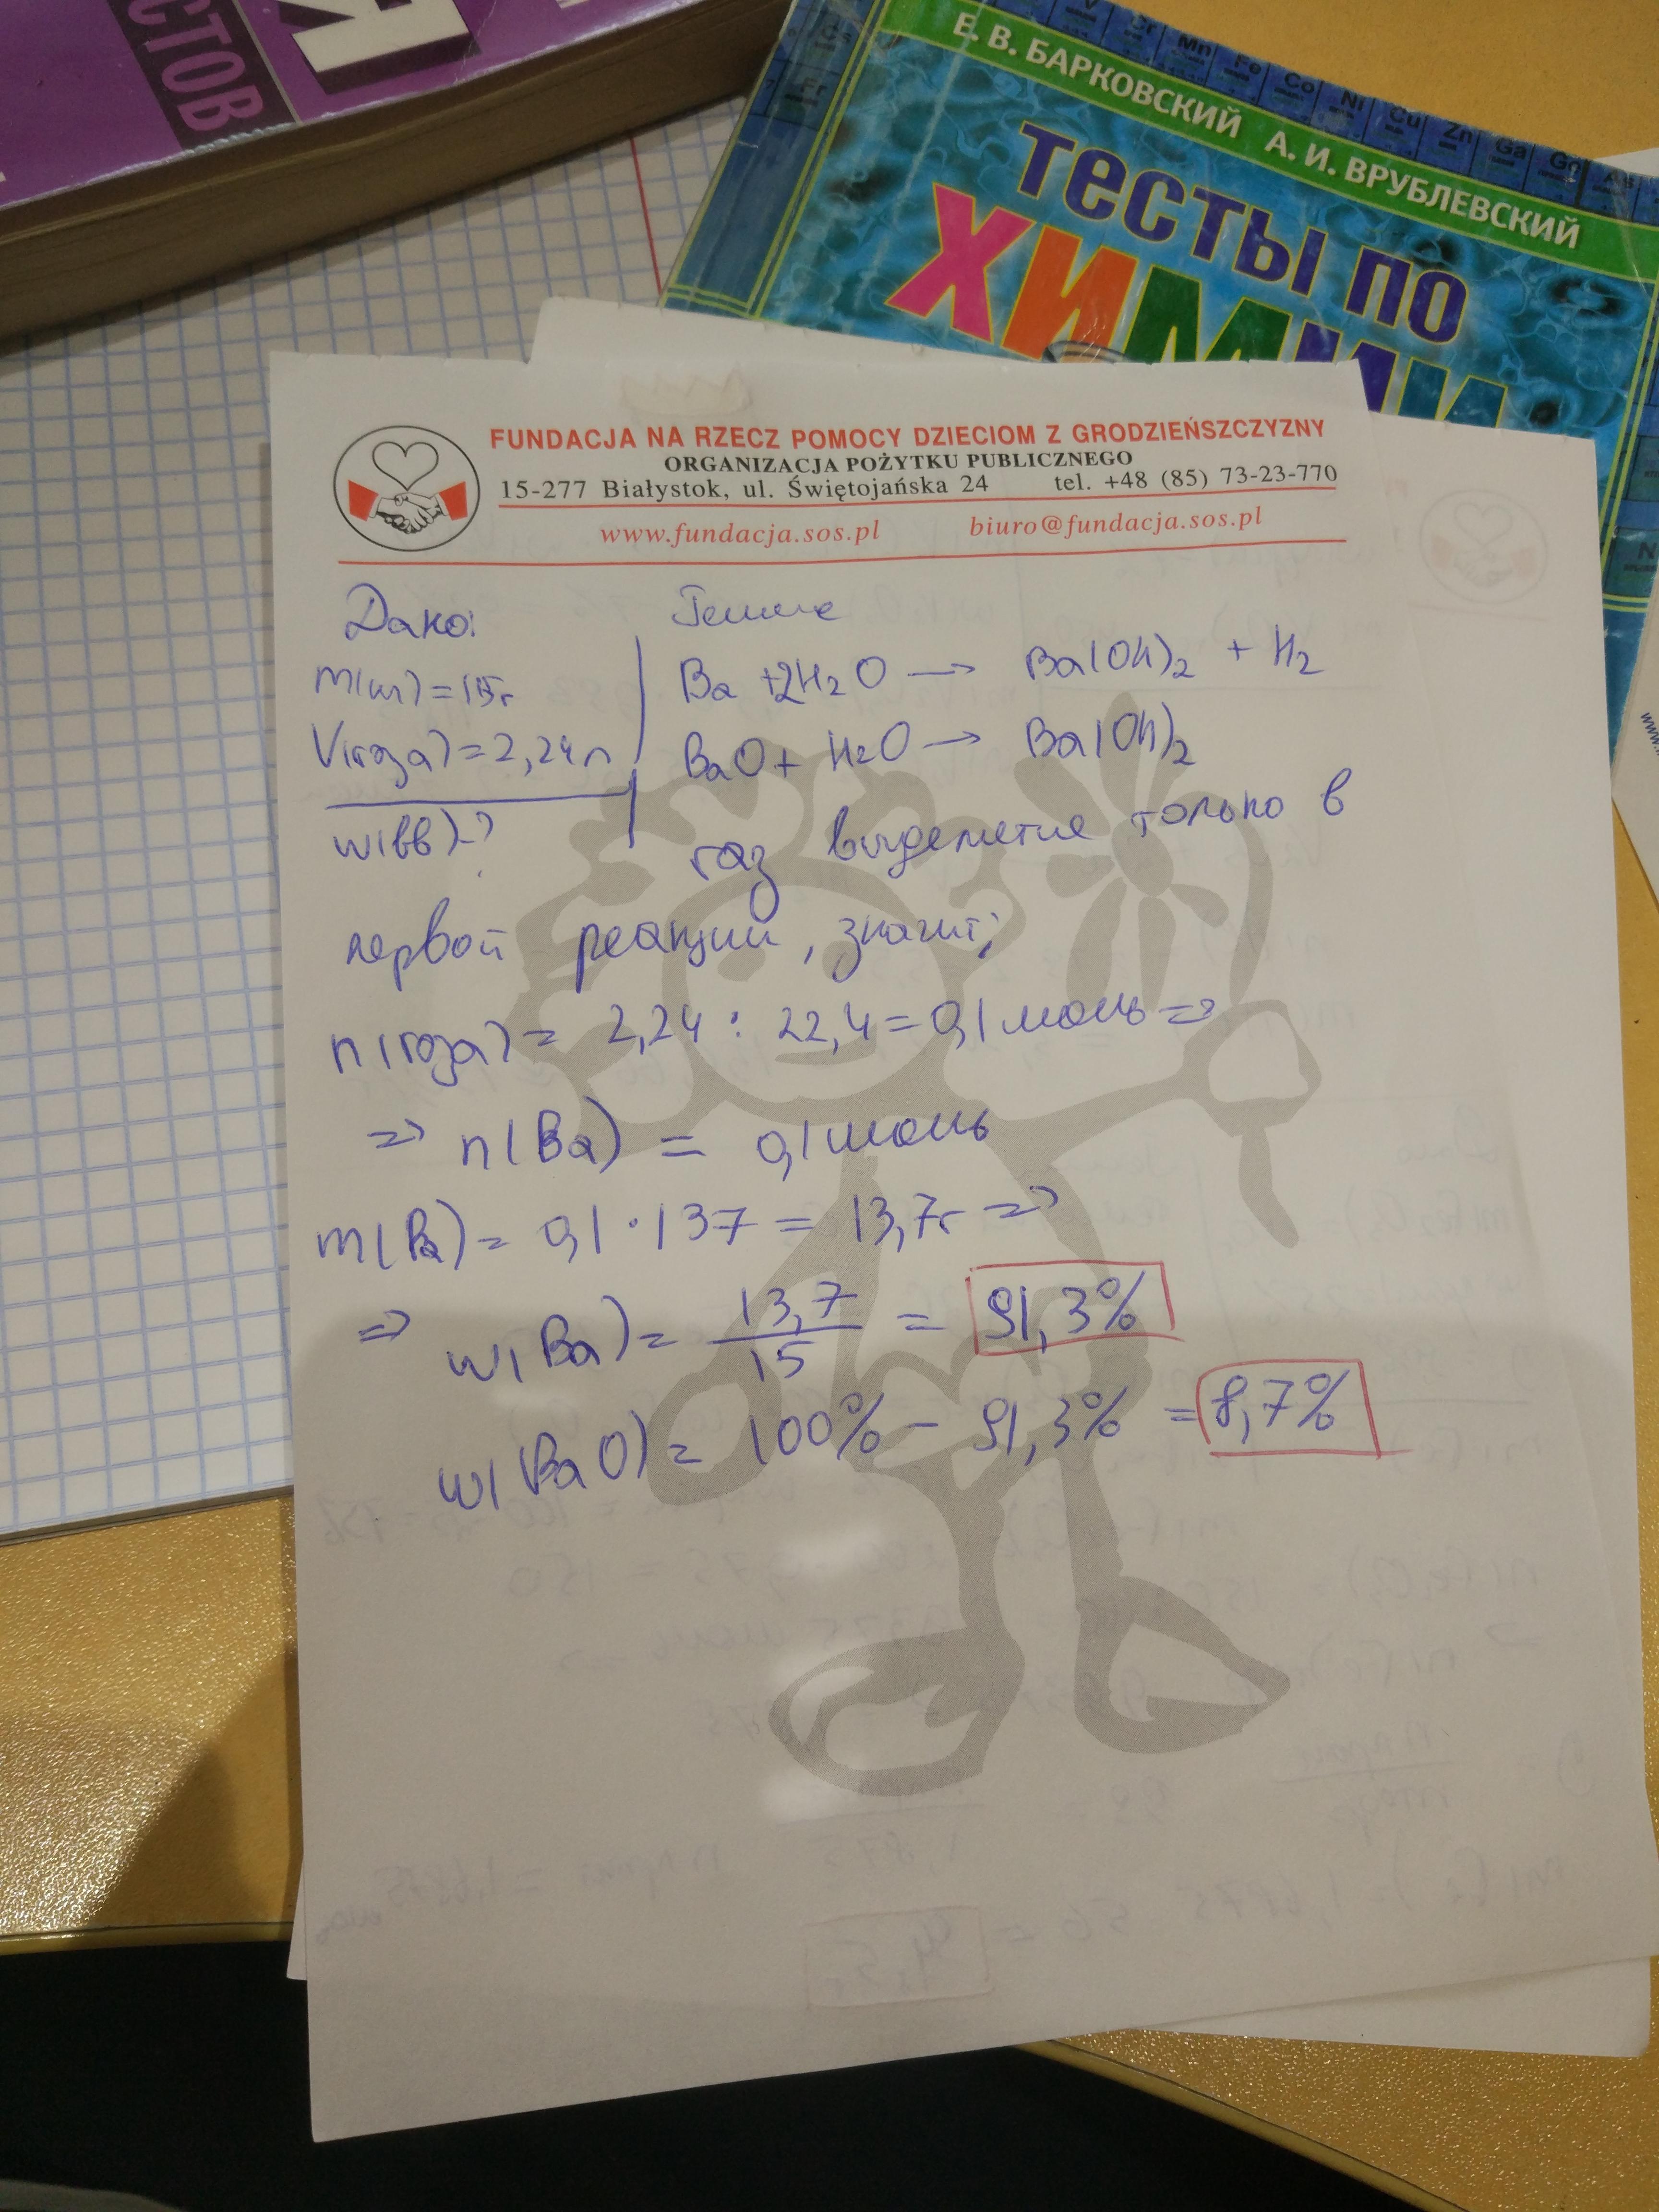 СТОВ
Е. В. БАРКОВСКИЙ А. И. ВРУБЛЕВСКИЙ
ТЕСТЫ ПО
ХИМИИ
Cr Mn Fe Co Ni Cu Zn Ga
FUNDACJA NA RZECZ POMOCY DZIECIOM Z GRODZIEŃSZCZYZNY
ORGANIZACJA POŻYTKU PUBLICZNEGO
15-277 Białystok, ul. Świętojańska 24 tel. +48 (85) 73-23-770
www.fundacja.sos.pl biuro@fundacja.sos.pl
Дано: Решение
m(см) = 15г Ba + 2H₂O → Ba(OH)₂ + H₂
V(газа) = 2,24 л BaO + H₂O → Ba(OH)₂
w(вв) - ? газ выделяется только в
первой реакции, значит;
n(газа) = 2,24 : 22,4 = 0,1 моль =>
=> n(Ba) = 0,1 моль
m(Ba) = 0,1 · 137 = 13,7г =>
=> w(Ba) = 13,7/15 = 91,3%
w(BaO) = 100% - 91,3% = 8,7%